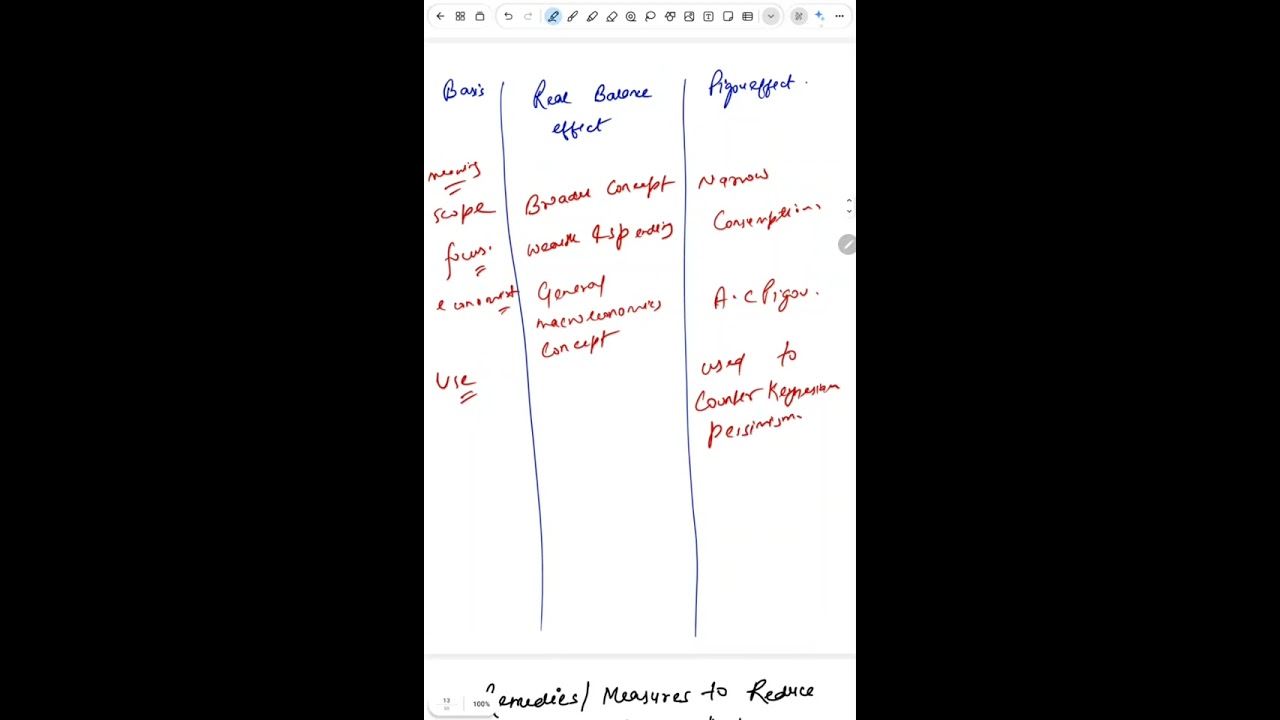 Basis Real Balance Pigou effect.
effect
meaning
scope Broader Concept Narrow
focus. wealth & spending Consumption.
economist General A.C Pigou.
macroeconomics
concept
Use used to
Counter Keynesian
Pessimism.
13
100%
Remedies/ Measures to Reduce